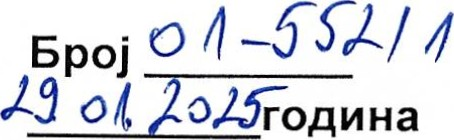 Број 01-552/1
29.01.2025 година